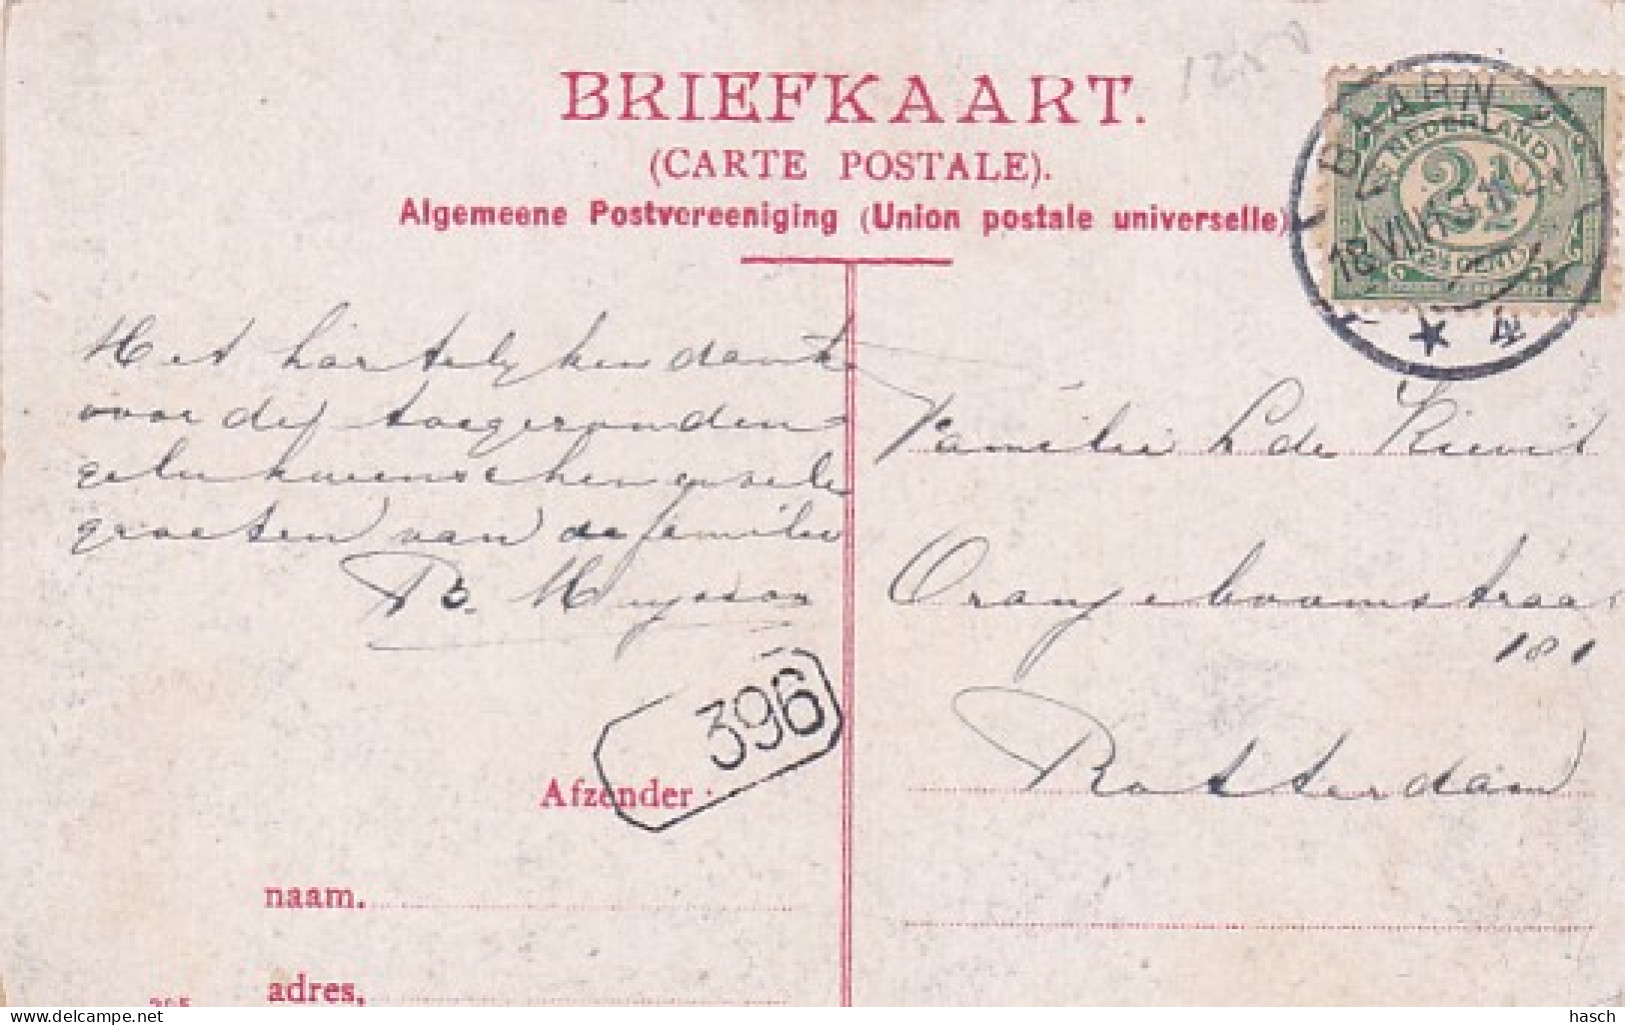 BRIEFKAART.
(CARTE POSTALE).
Algemeene Postvereeniging (Union postale universelle)
BAARN
NEDERLAND
2½
CENT
4
Met hartelijken dank
voor de toegezonden
gelukwenschen en vele
groeten van de familie
Familie L de Kievit
Oranjeboomstraa
181
Rotterdam
396
Afzender :
naam.
adres.
delcampe.net
hasch